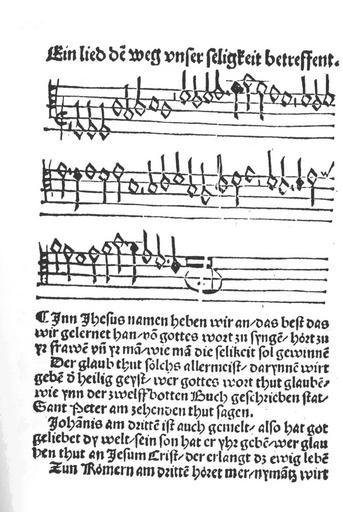 Ein lied dē weg vnser seligkeit betreffent.
C Inn Jhesus namen heben wir an/das best das
wir gelernet han/vō gottes wort zu syngē/hört zu
yr frawē vn̄ yr mā/wie mā die selikeit sol gewinnē
Der glaub thut solchs allermeist/darynnē wirt
gebē d̄ heilig geyst/wer gottes wort thut glaubē/
wie ynn der zwelffbotten Buch geschrieben stat/
Sant Peter am zehenden thut sagen.
Johānis am drittē ist auch gemelt/also hat got
geliebet dy welt/sein son hat er yhr gebē/wer glau
ben thut an Jesum Crist/der erlangt dz ewig lebē
Zun Römern am drittē höret mer/nymātz wirt